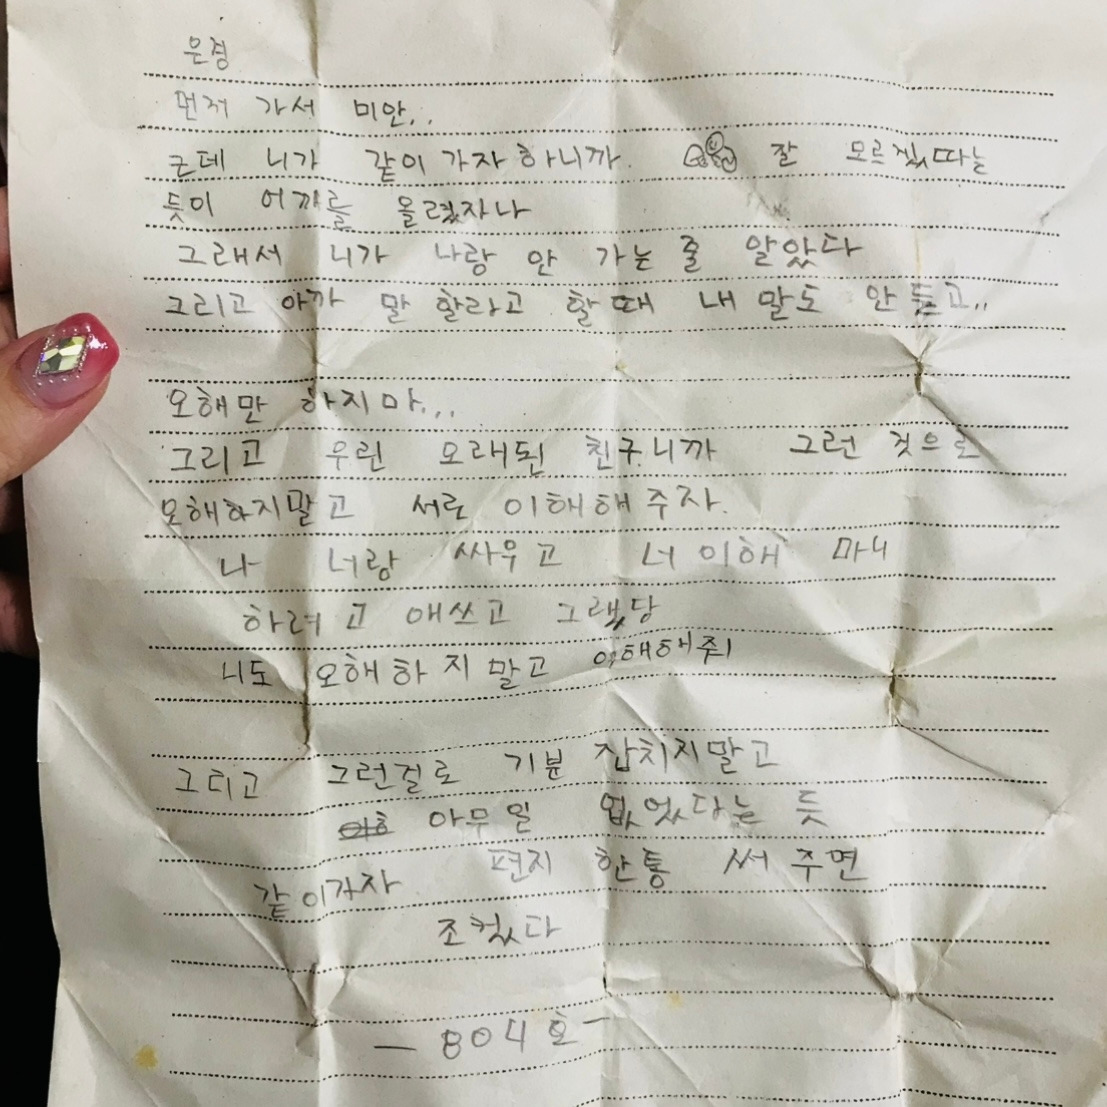 은경
먼저 가서 미안..
근데 니가 같이 가자 하니까. 잘 모르겠따는
듯이 어깨를 올렸자나
그래서 니가 나랑 안 가는 줄 알았다
그리고 아까 말 할라고 할때 내 말도 안 듣고..
오해만 하지마...
그리고 우린 오래된 친구니까 그런 것으로
오해하지말고 서로 이해해주자.
나 너랑 싸우고 너 이해 마니
하려고 애쓰고 그랬당
니도 오해하지말고 이해해줘
그리고 그런걸로 기분 잡치지말고
아무일 없었다는 듯
편지 한통 써 주면
같이가자
조컸다
- 804호 -